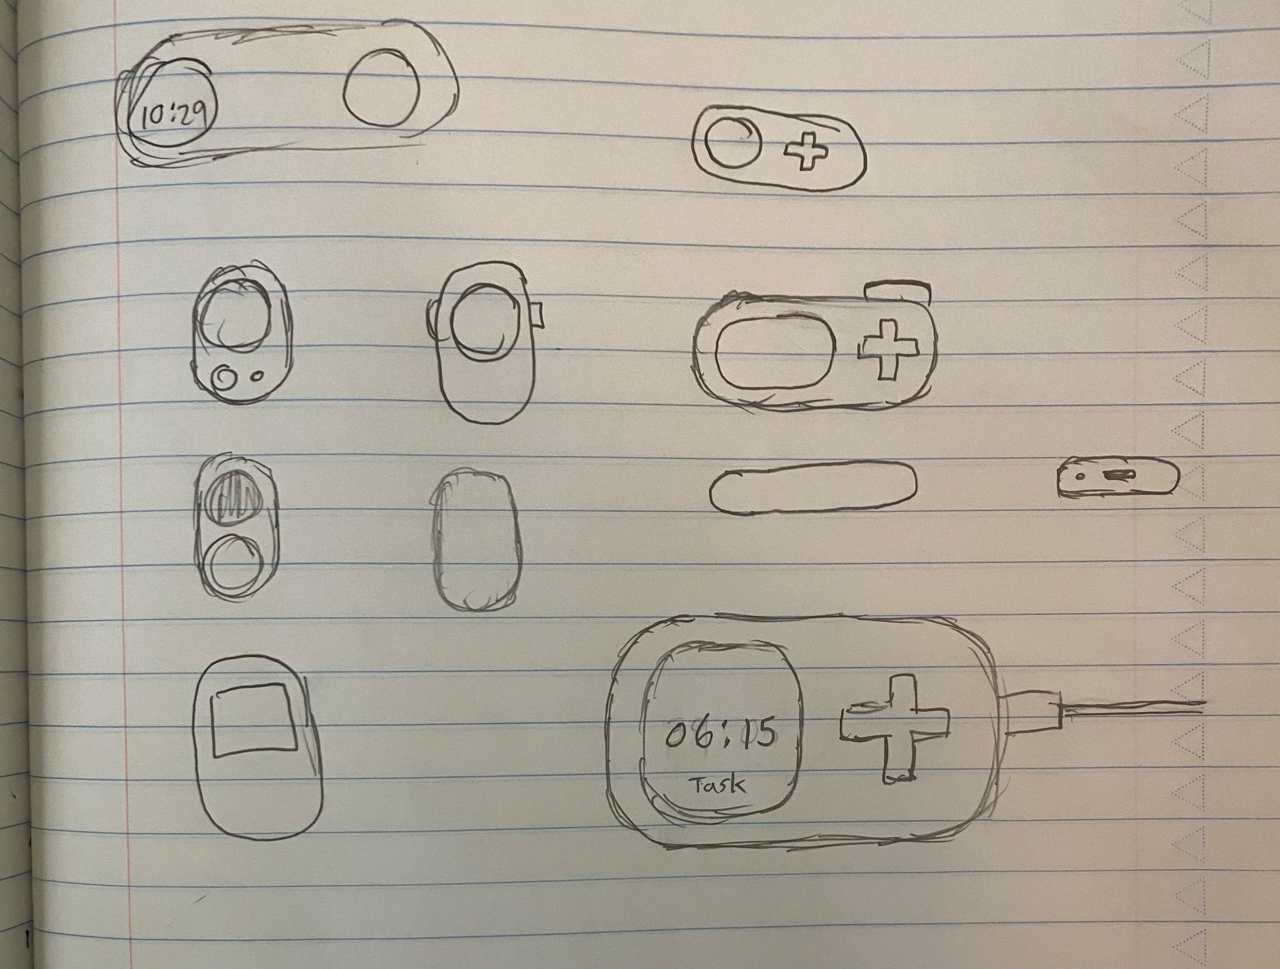 10:29
06:15
Task